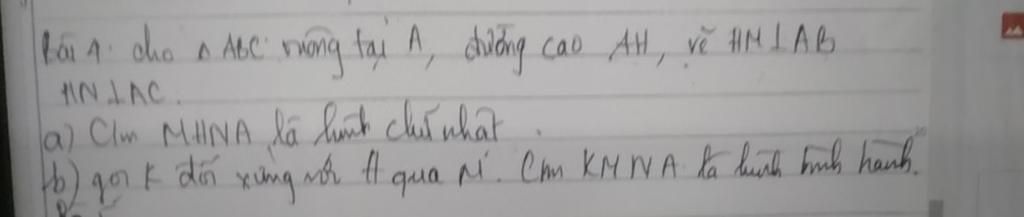 Bài 4: cho △ ABC vuông tại A, đường cao AH, vẽ HM⊥AB
HN⊥AC.
a) Cm MHNA là hình chữ nhật.
b) gọi K đối xứng với H qua M. Cm KMNA là hình bình hành.